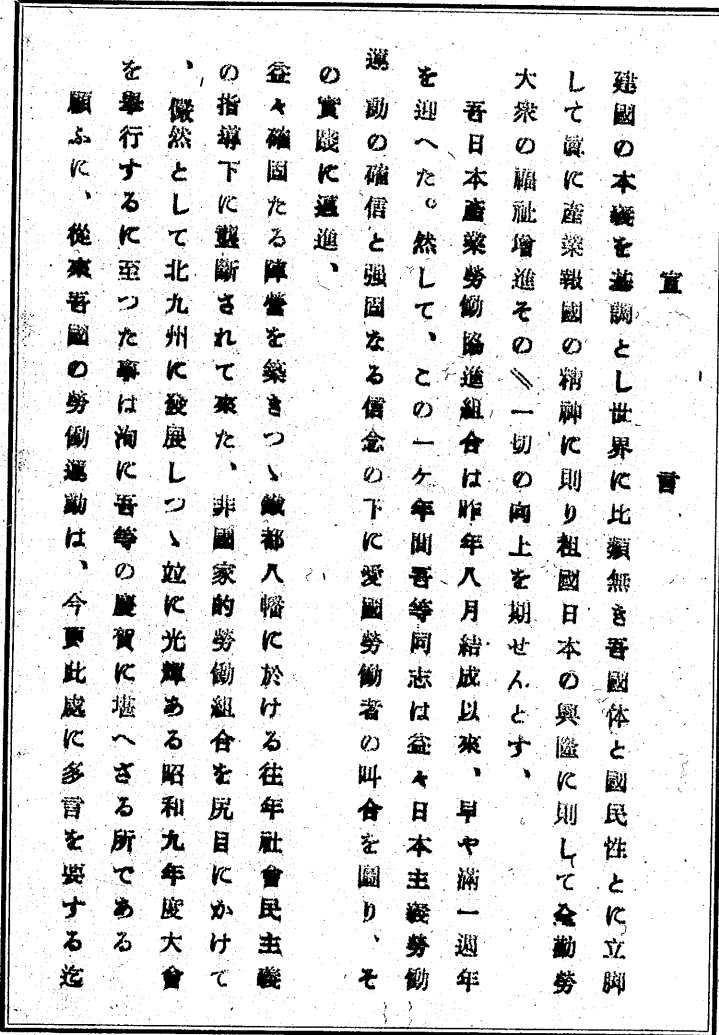 宣言
建國の本義を基調とし世界に比類無き吾國体と國民性とに立脚
して眞に產業報國の精神に則り祖國日本の興隆に則して全勤勞
大衆の福祉增進その〃一切の向上を期せんとす、
吾日本產業勞働協進組合は昨年八月結成以來、早や滿一週年
を迎へた。然して、この一ヶ年間吾等同志は益々日本主義勞働
運動の確信と强固なる信念の下に愛國勞働者の叫合を圖り、そ
の實踐に邁進、
益々確固たる陣營を築きつゝ鐵都八幡に於ける往年社會民主義
の指導下に壟斷されて來た、非國家的勞働組合を尻目にかけて
、儼然として北九州に發展しつゝ竝に光輝ある昭和九年度大會
を擧行するに至つた事は洵に吾等の慶賀に堪へざる所である
願ふに、從來吾國の勞働運動は、今更此處に多言を要する迄